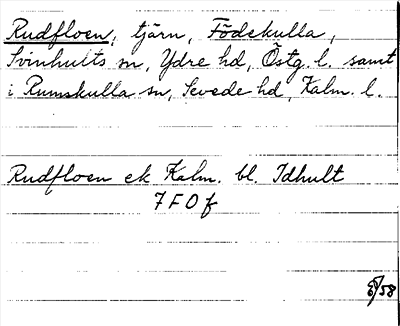 Rudfloen, tjärn, Födekulla,
Svinhults sn, Ydre hd, Östg. l. samt
i Rumskulla sn, Sevede hd, Kalm. l.
Rudfloen ek Kalm. bl. Idhult
7 F 0 f
58